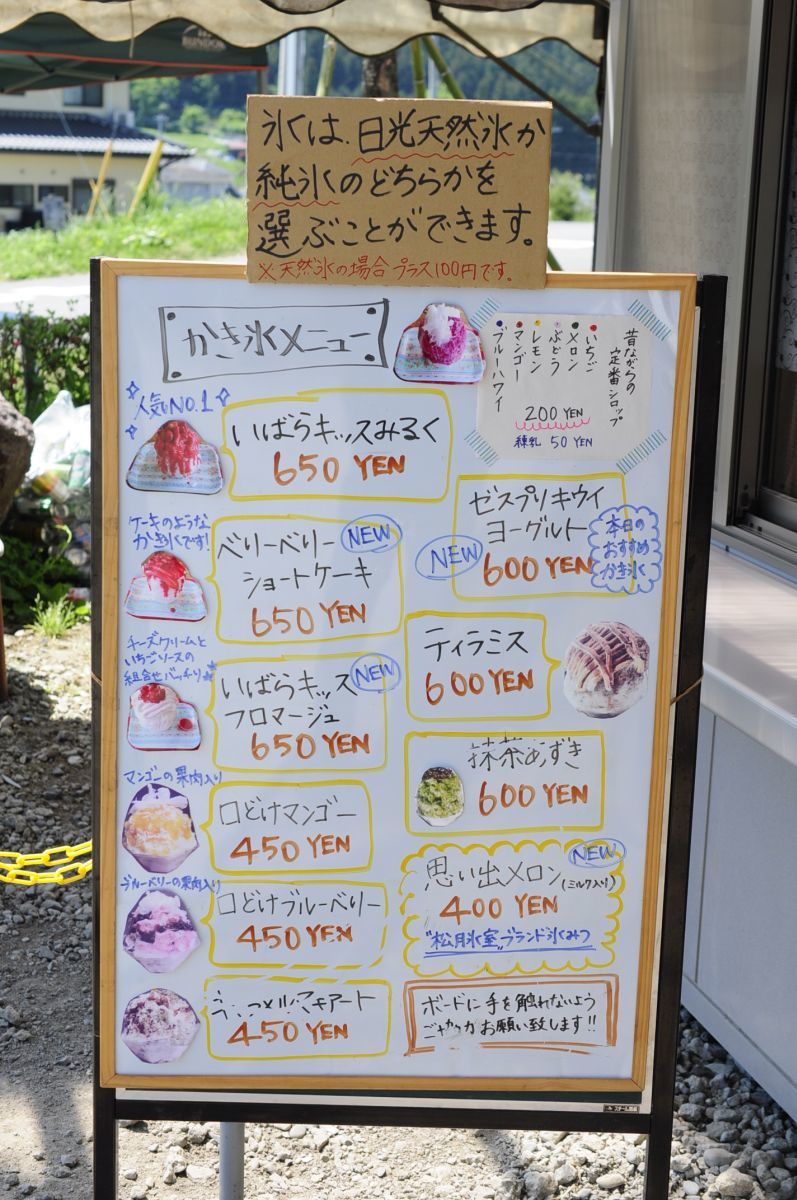 氷は、日光天然氷か
純氷のどちらかを
選ぶことができます。
※天然氷の場合プラス100円です。
かき氷メニュー
昔ながらの
定番シロップ
いちご
メロン
ぶどう
レモン
マンゴー
ブルーハワイ
200 YEN
練乳 50 YEN
人気NO.1
いばらキッスみるく
650 YEN
ケーキのような
かき氷です!
ベリーベリー
ショートケーキ
NEW
650 YEN
チーズクリームと
いちごソースの
組合せバッチリ
いばらキッス
フロマージュ
NEW
650 YEN
マンゴーの果肉入り
口どけマンゴー
450 YEN
ブルーベリーの果肉入り
口どけブルーベリー
450 YEN
450 YEN
ゼスプリキウイ
ヨーグルト
NEW
600 YEN
本日の
おすすめ
かき氷
ティラミス
600 YEN
抹茶あずき
600 YEN
NEW
思い出メロン(ミルク入り)
400 YEN
"松月氷室"ブランド氷みつ
ボードに手を触れないよう
お願い致します!!